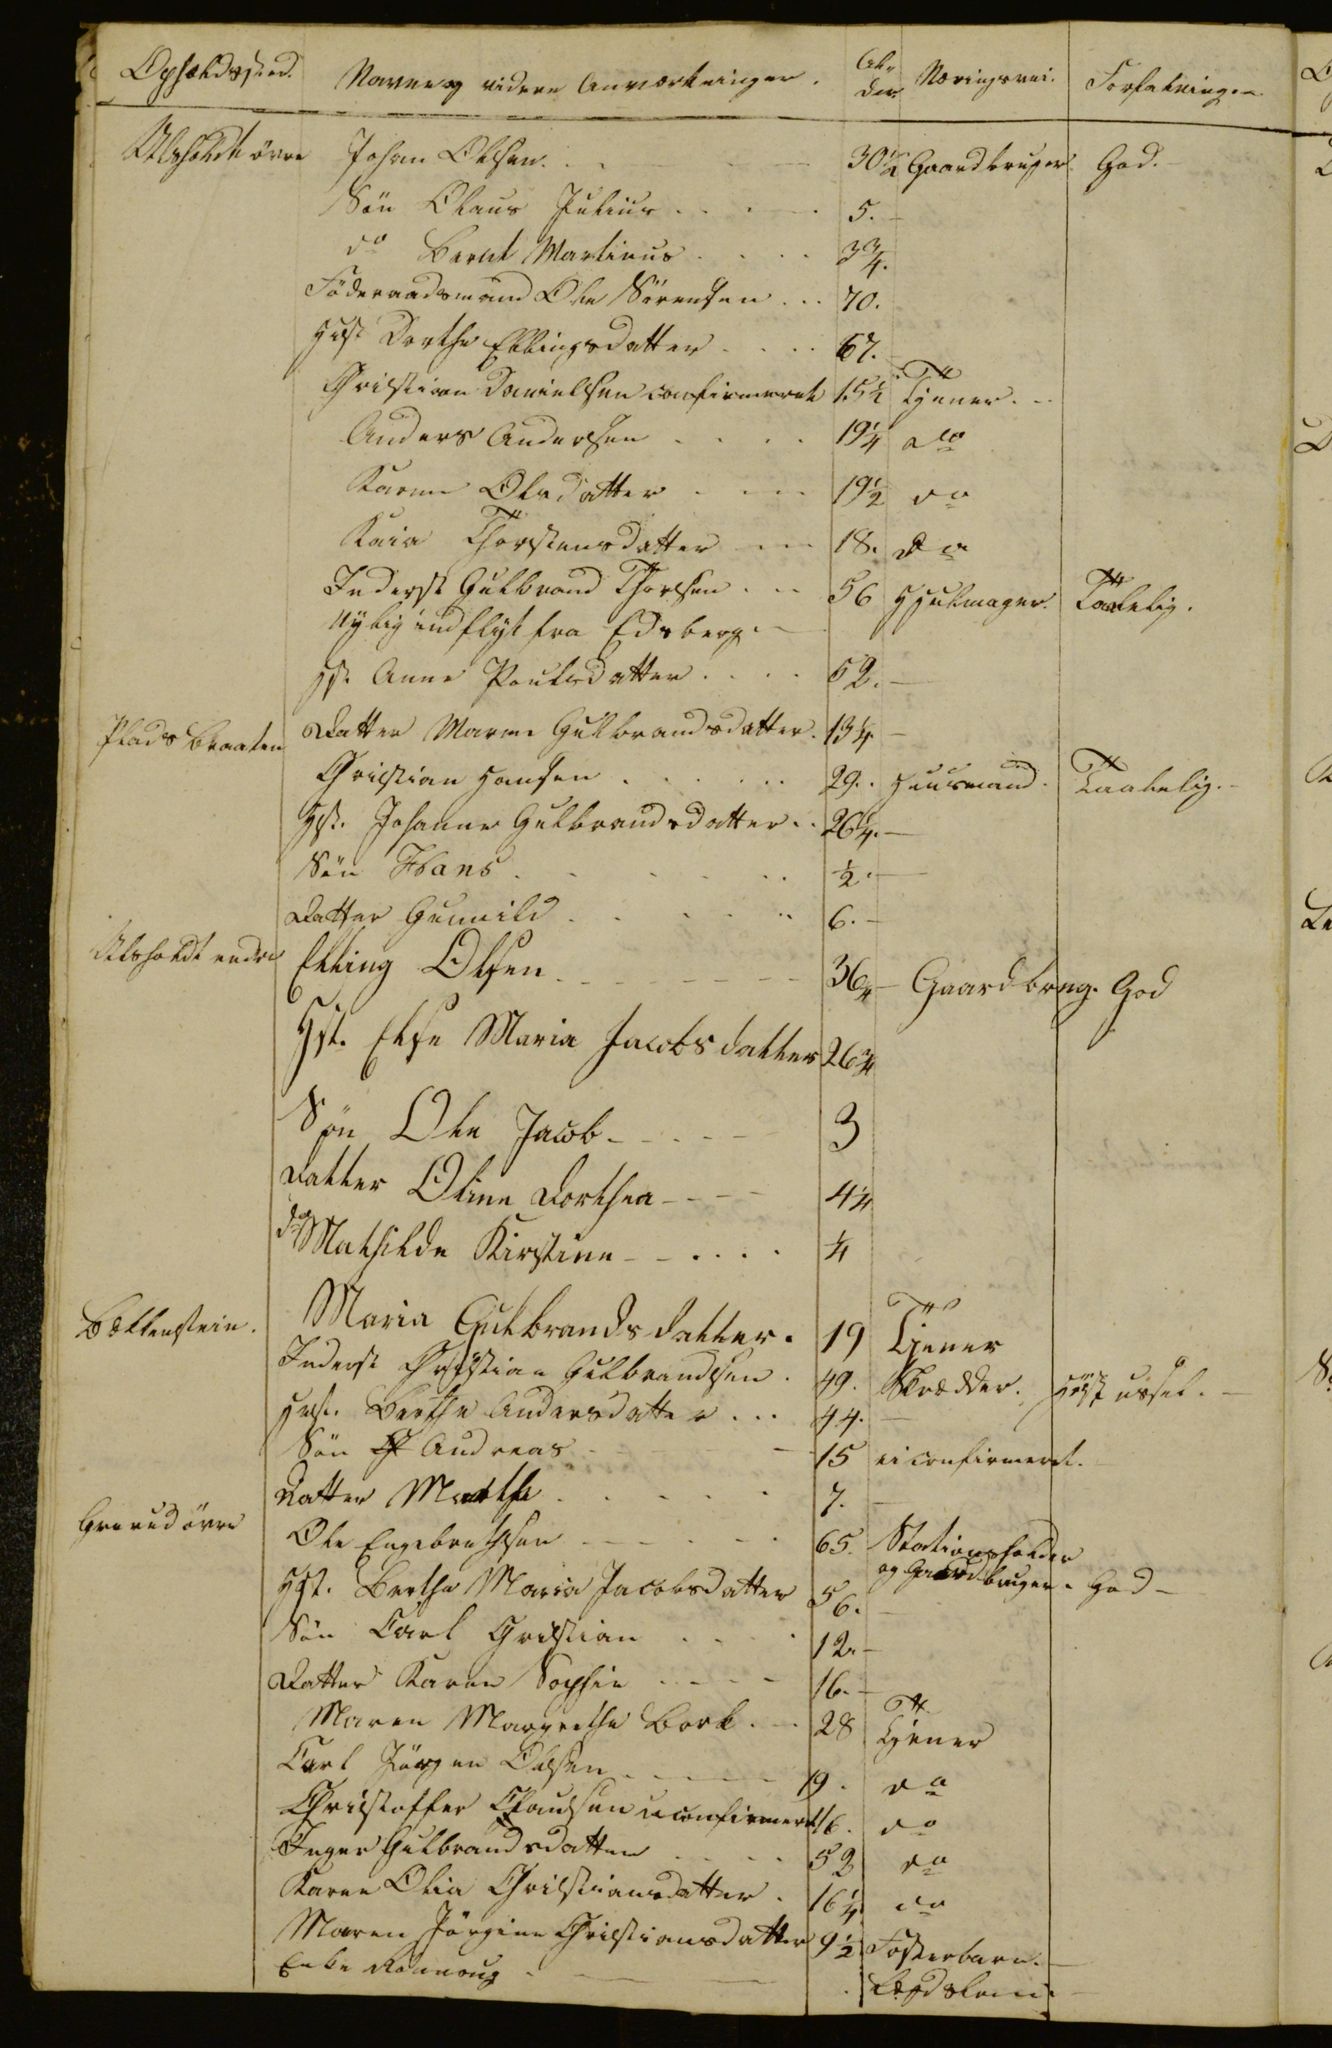 Opholdssted. Navne og videre Anmærkninger. Alder Næringsvei. Forfatningen
Ulsholdt övre Johan Olsen 30 1/2 Gaardbruger God.
Sön Olaus Julius 5.
do Bernt Martinus 3 3/4.
Föderaadsmand Ole Sörensen 70.
Hust Dorthe Ellingsdatter 67.
Christian Danielsen confirmeret 15 1/2 Tjener.
Anders Andersen 19 1/4 do
Karen Olsdatter 19 1/2 do
Kaia Thorstensdatter 18. do
Inderst Gulbrand Thorsen 56 Hjulmager. Taalelig.
Nylig indflyt fra Edsberg
Hst. Anne Poulsdatter 52.
Plads Braaten Datter Maren Gulbrandsdatter. 13 1/4
Christian Hansen 29. Huusmand. Taalelig.
Hst. Johanne Gulbrandsdatter 26 1/4.
Sön Hans 1/2.
Datter Gunnild 6.
Ulsholdt nedre Elling Olsen 36 Gaardbrug. God
Hst. Else Maria Jacobsdatter 26 3/4
Sön Ole Jacob 3
Datter Oline Dorthea 4 1/4
do Mathilde Kirstine 1/4
Maria Gulbrandsdatter. 19 Tjener
Bøkkenstein. Inderst Christian Gulbrandsen. 49. Skrædder. Höist ussel.
Hust. Berthe Andersdatter 44.
Sön Andreas 15 ei confirmeret.
Datter Marthe 7.
Grerud övre Ole Engebrethsen 65. Stationsholder
og Gaardbruger. God
Hst. Berthe Maria Jacobsdatter 56.
Sön Carl Christian 12.
Datter Karen Sophie 16.
Maren Margrethe Bork. 28 Tjener
Carl Jörgen Olsen 19. do
Christoffer Clausen uconfirmeret 16. do
Inger Gulbrandsdatter 52 do
Karen Olia Christiansdatter. 16 1/4 do
Maren Jörgine Christiansdatter 9 1/2 Fosterbarn.
Enke Rannoug Lægdslem.